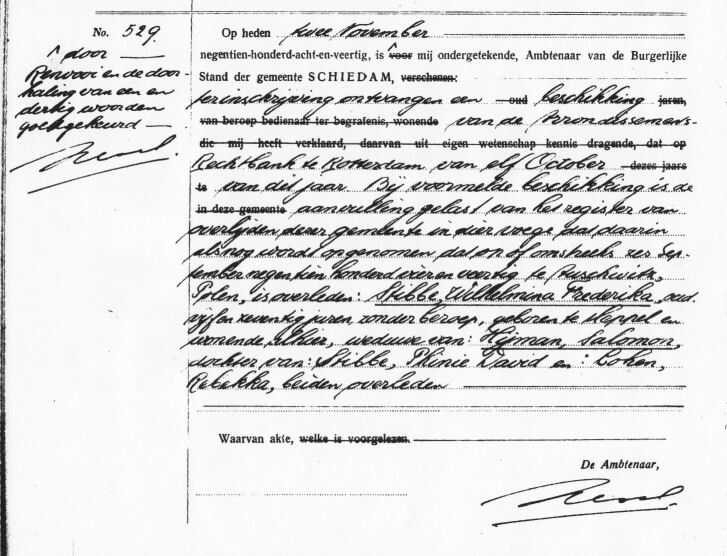 No. 529.
^ door
Renvooi en de door-
haling van een en
dertig woorden
goedgekeurd
Op heden twee November
negentien-honderd-acht-en-veertig, is voor mij ondergetekende, Ambtenaar van de Burgerlijke
Stand der gemeente SCHIEDAM, verschenen:
ter inschrijving ontvangen een oud beschikking jaren,
van beroep bedienaar ter begrafenis, wonende van de Arrondissements-
die mij heeft verklaard, daarvan uit eigen wetenschap kennis dragende, dat op
Rechtbank te Rotterdam van elf October dezes jaars
te van dit jaar. Bij voormelde beschikking is de
in deze gemeente aanvulling gelast van het register van
overlijden dezer gemeente in dier voege dat daarin
alsnog wordt opgenomen dat op of omstreeks zes Sep-
tember negentien honderd vier en veertig te Auschwitz,
Polen, is overleden: Stibbe, Wilhelmina Frederika, oud
vijf en zeventig jaren, zonder beroep, geboren te Meppel en
wonende alhier, weduwe van: Hijman, Salomon,
dochter van: Stibbe, Phinie David en: Cohen,
Rebekka, beiden overleden
Waarvan akte, welke is voorgelezen.
De Ambtenaar,